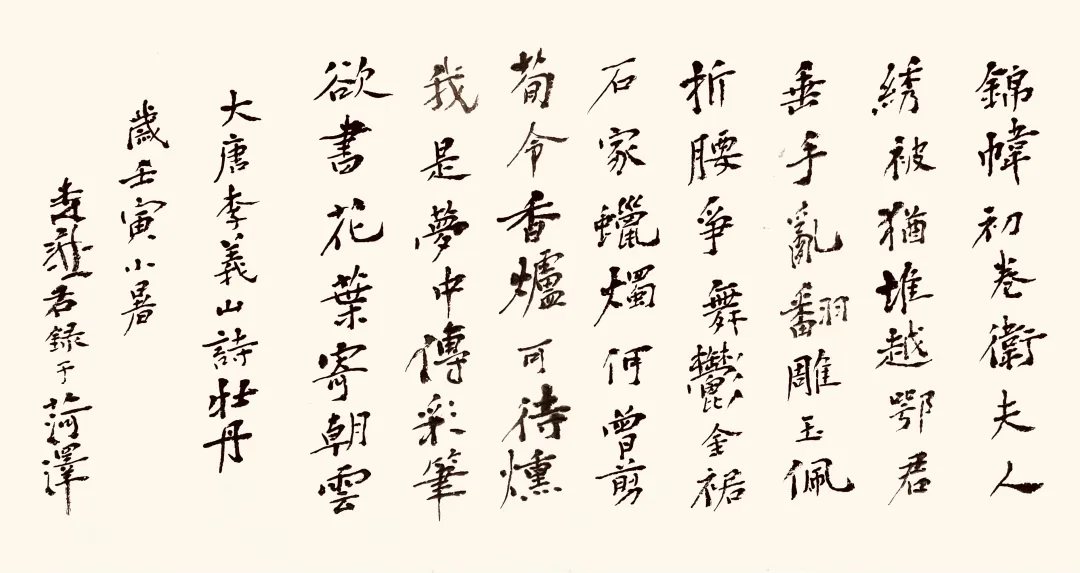 錦幃初卷衛夫人
綉被猶堆越鄂君
垂手亂翻雕玉佩
折腰爭舞鬱金裾
石家蠟燭何曾剪
荀令香爐可待燻
我是夢中傳彩筆
欲書花葉寄朝雲
大唐李義山詩牡丹
歲壬寅小暑
李 君録于菏澤